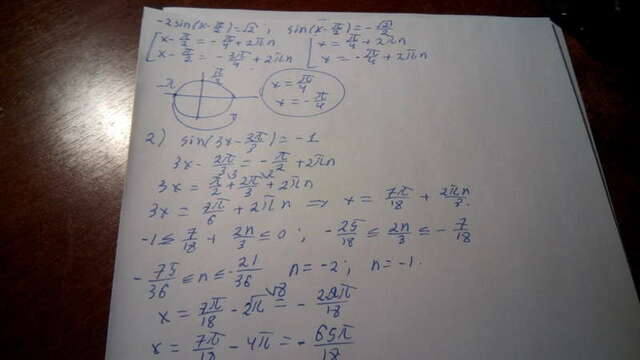 -2sin(x-π/2)=√2; sin(x-π/2)=-√2/2
[x-π/2=-π/4+2πn | x=π/4+2πn
x-π/2=-3π/4+2πn | x=-π/4+2πn
-π π/2 x=π/4
0 x=-π/4
2) sin(3x-2π/3)=-1
3x-2π/3=-π/2+2πn
3x=π/2+2π/3+2πn
3x=7π/6+2πn => x=7π/18+2πn/3.
-1≤7/18+2n/3≤0; -25/18≤2n/3≤-7/18
-75/36≤n≤-21/36 n=-2; n=-1.
x=7π/18-2π=-29π/18
x=7π/18-4π=-65π/18